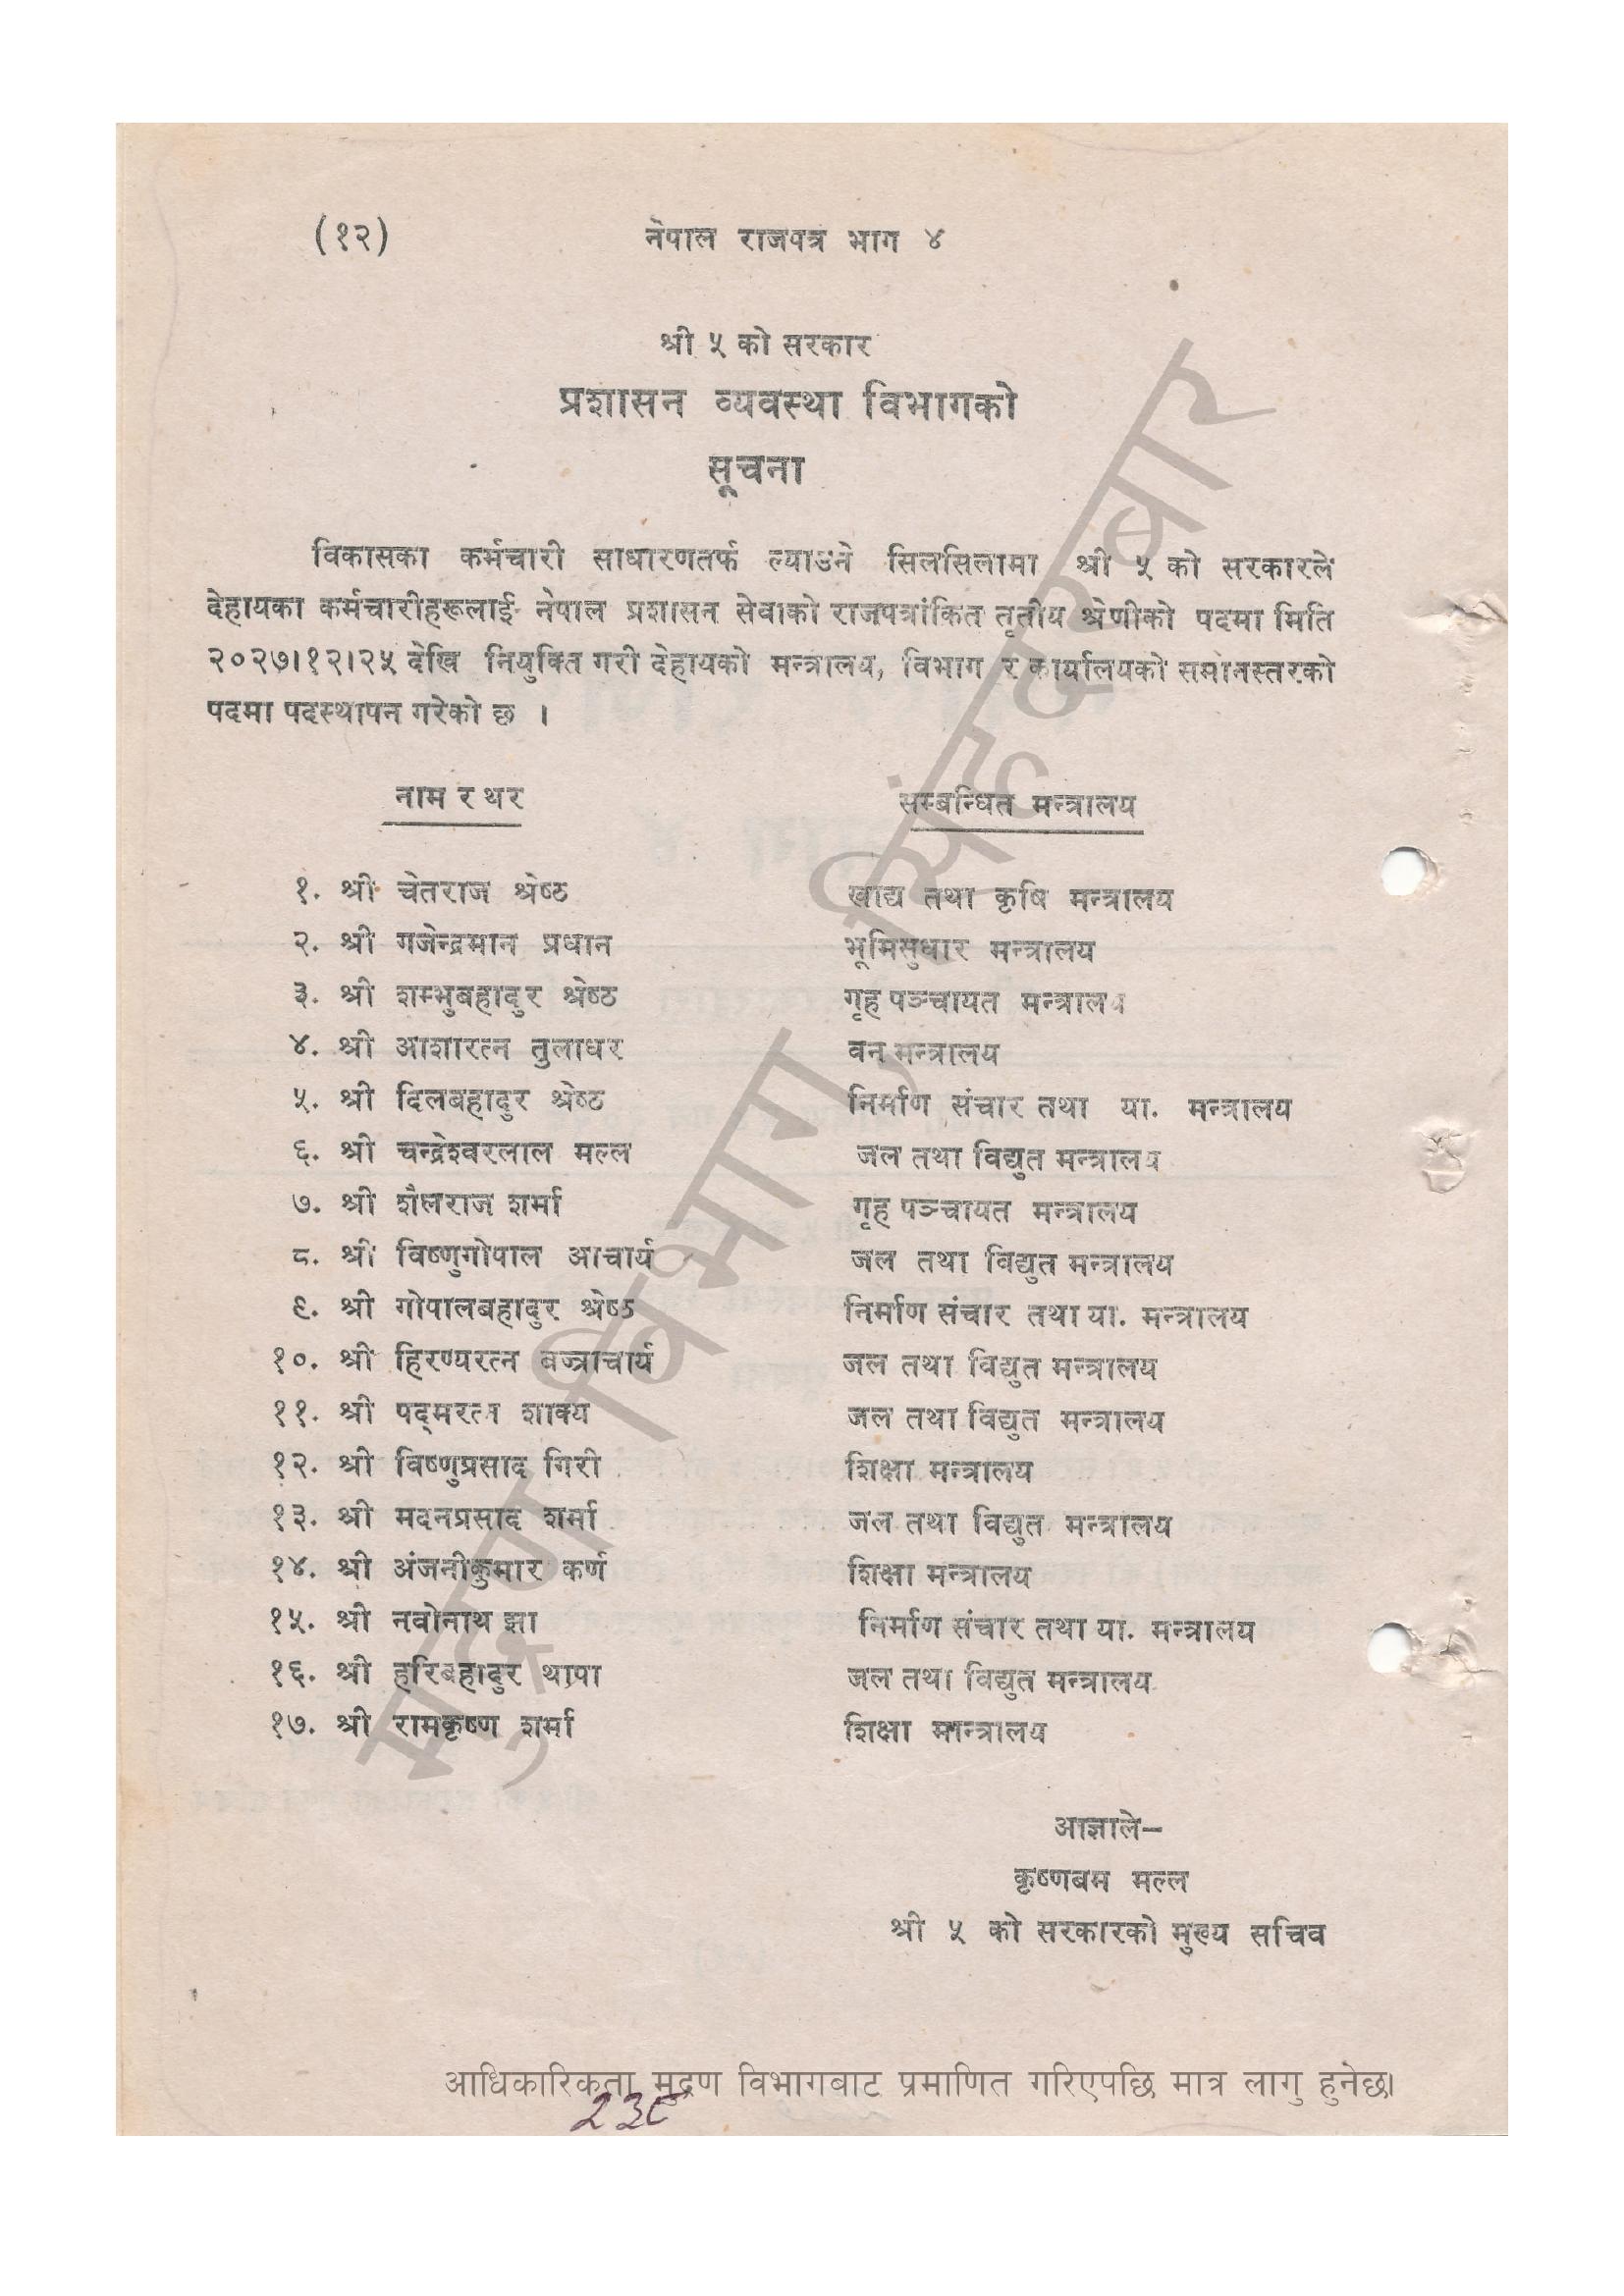 (१२) नेपाल राजपत्र भाग ४
श्री ५ को सरकार
प्रशासन व्यवस्था विभागको
सूचना
विकासका कर्मचारी साधारणतर्फ ल्याउने सिलसिलामा श्री ५ को सरकारले
देहायका कर्मचारीहरूलाई नेपाल प्रशासन सेवाको राजपत्रांकित तृतीय श्रेणीको पदमा मिति
२०२७।१२।२५ देखि नियुक्ति गरी देहायको मन्त्रालय, विभाग र कार्यालयको समानस्तरको
पदमा पदस्थापन गरेको छ ।
नाम र थर सम्बन्धित मन्त्रालय
१. श्री चेतराज श्रेष्ठ खाद्य तथा कृषि मन्त्रालय
२. श्री गजेन्द्रमान प्रधान भूमिसुधार मन्त्रालय
३. श्री शम्भुबहादुर श्रेष्ठ गृह पञ्चायत मन्त्रालय
४. श्री आशारत्न तुलाधर वन मन्त्रालय
५. श्री दिलबहादुर श्रेष्ठ निर्माण संचार तथा या. मन्त्रालय
६. श्री चन्द्रेश्वरलाल मल्ल जल तथा विद्युत मन्त्रालय
७. श्री शैलराज शर्मा गृह पञ्चायत मन्त्रालय
८. श्री विष्णुगोपाल आचार्य जल तथा विद्युत मन्त्रालय
९. श्री गोपालबहादुर श्रेष्ठ निर्माण संचार तथा या. मन्त्रालय
१०. श्री हिरण्यरत्न बज्राचार्य जल तथा विद्युत मन्त्रालय
११. श्री पद्मरत्न शाक्य जल तथा विद्युत मन्त्रालय
१२. श्री विष्णुप्रसाद गिरी शिक्षा मन्त्रालय
१३. श्री मदनप्रसाद शर्मा जल तथा विद्युत मन्त्रालय
१४. श्री अंजनीकुमार कर्ण शिक्षा मन्त्रालय
१५. श्री नवोनाथ झा निर्माण संचार तथा या. मन्त्रालय
१६. श्री हरिबहादुर थापा जल तथा विद्युत मन्त्रालय
१७. श्री रामकृष्ण शर्मा शिक्षा मान्त्रालय
आज्ञाले–
कृष्णबम मल्ल
श्री ५ को सरकारको मुख्य सचिव
मुद्रण विभाग, सिंहदरबार
आधिकारिकता मुद्रण विभागबाट प्रमाणित गरिएपछि मात्र लागु हुनेछ।